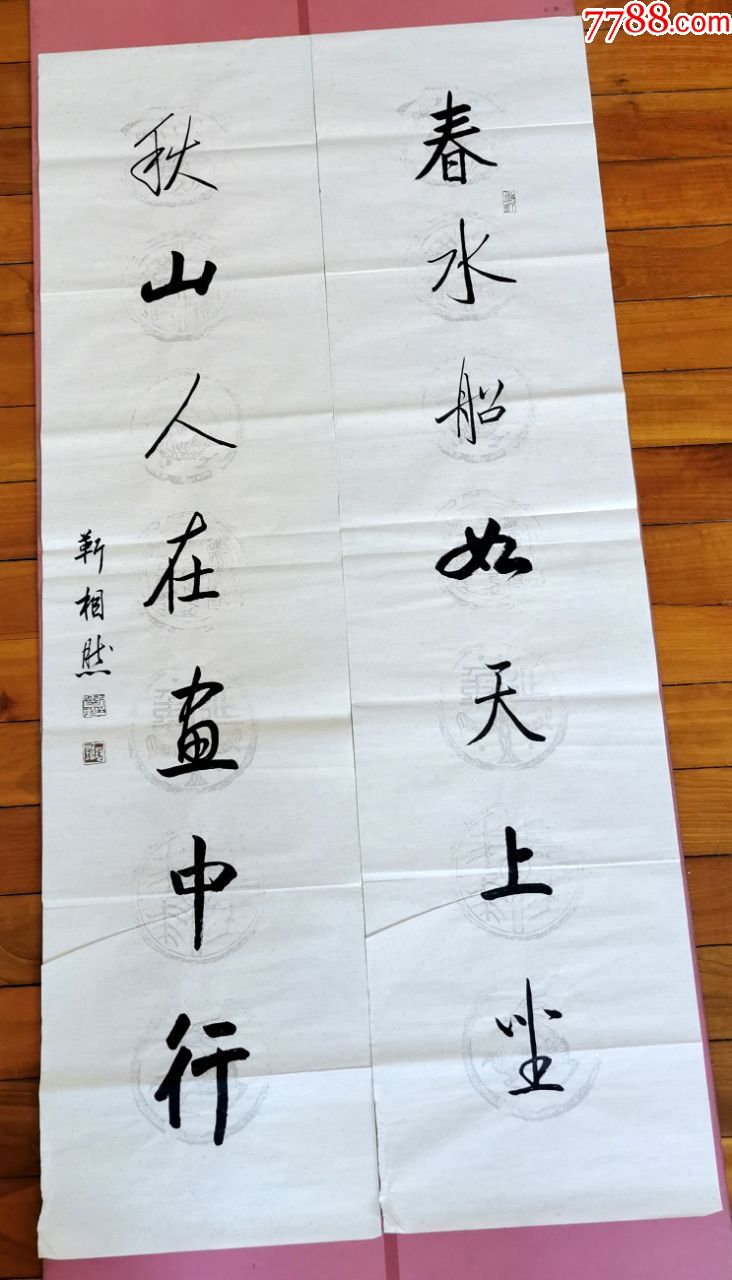 7788.com
春水船如天上坐
秋山人在画中行
靳相然